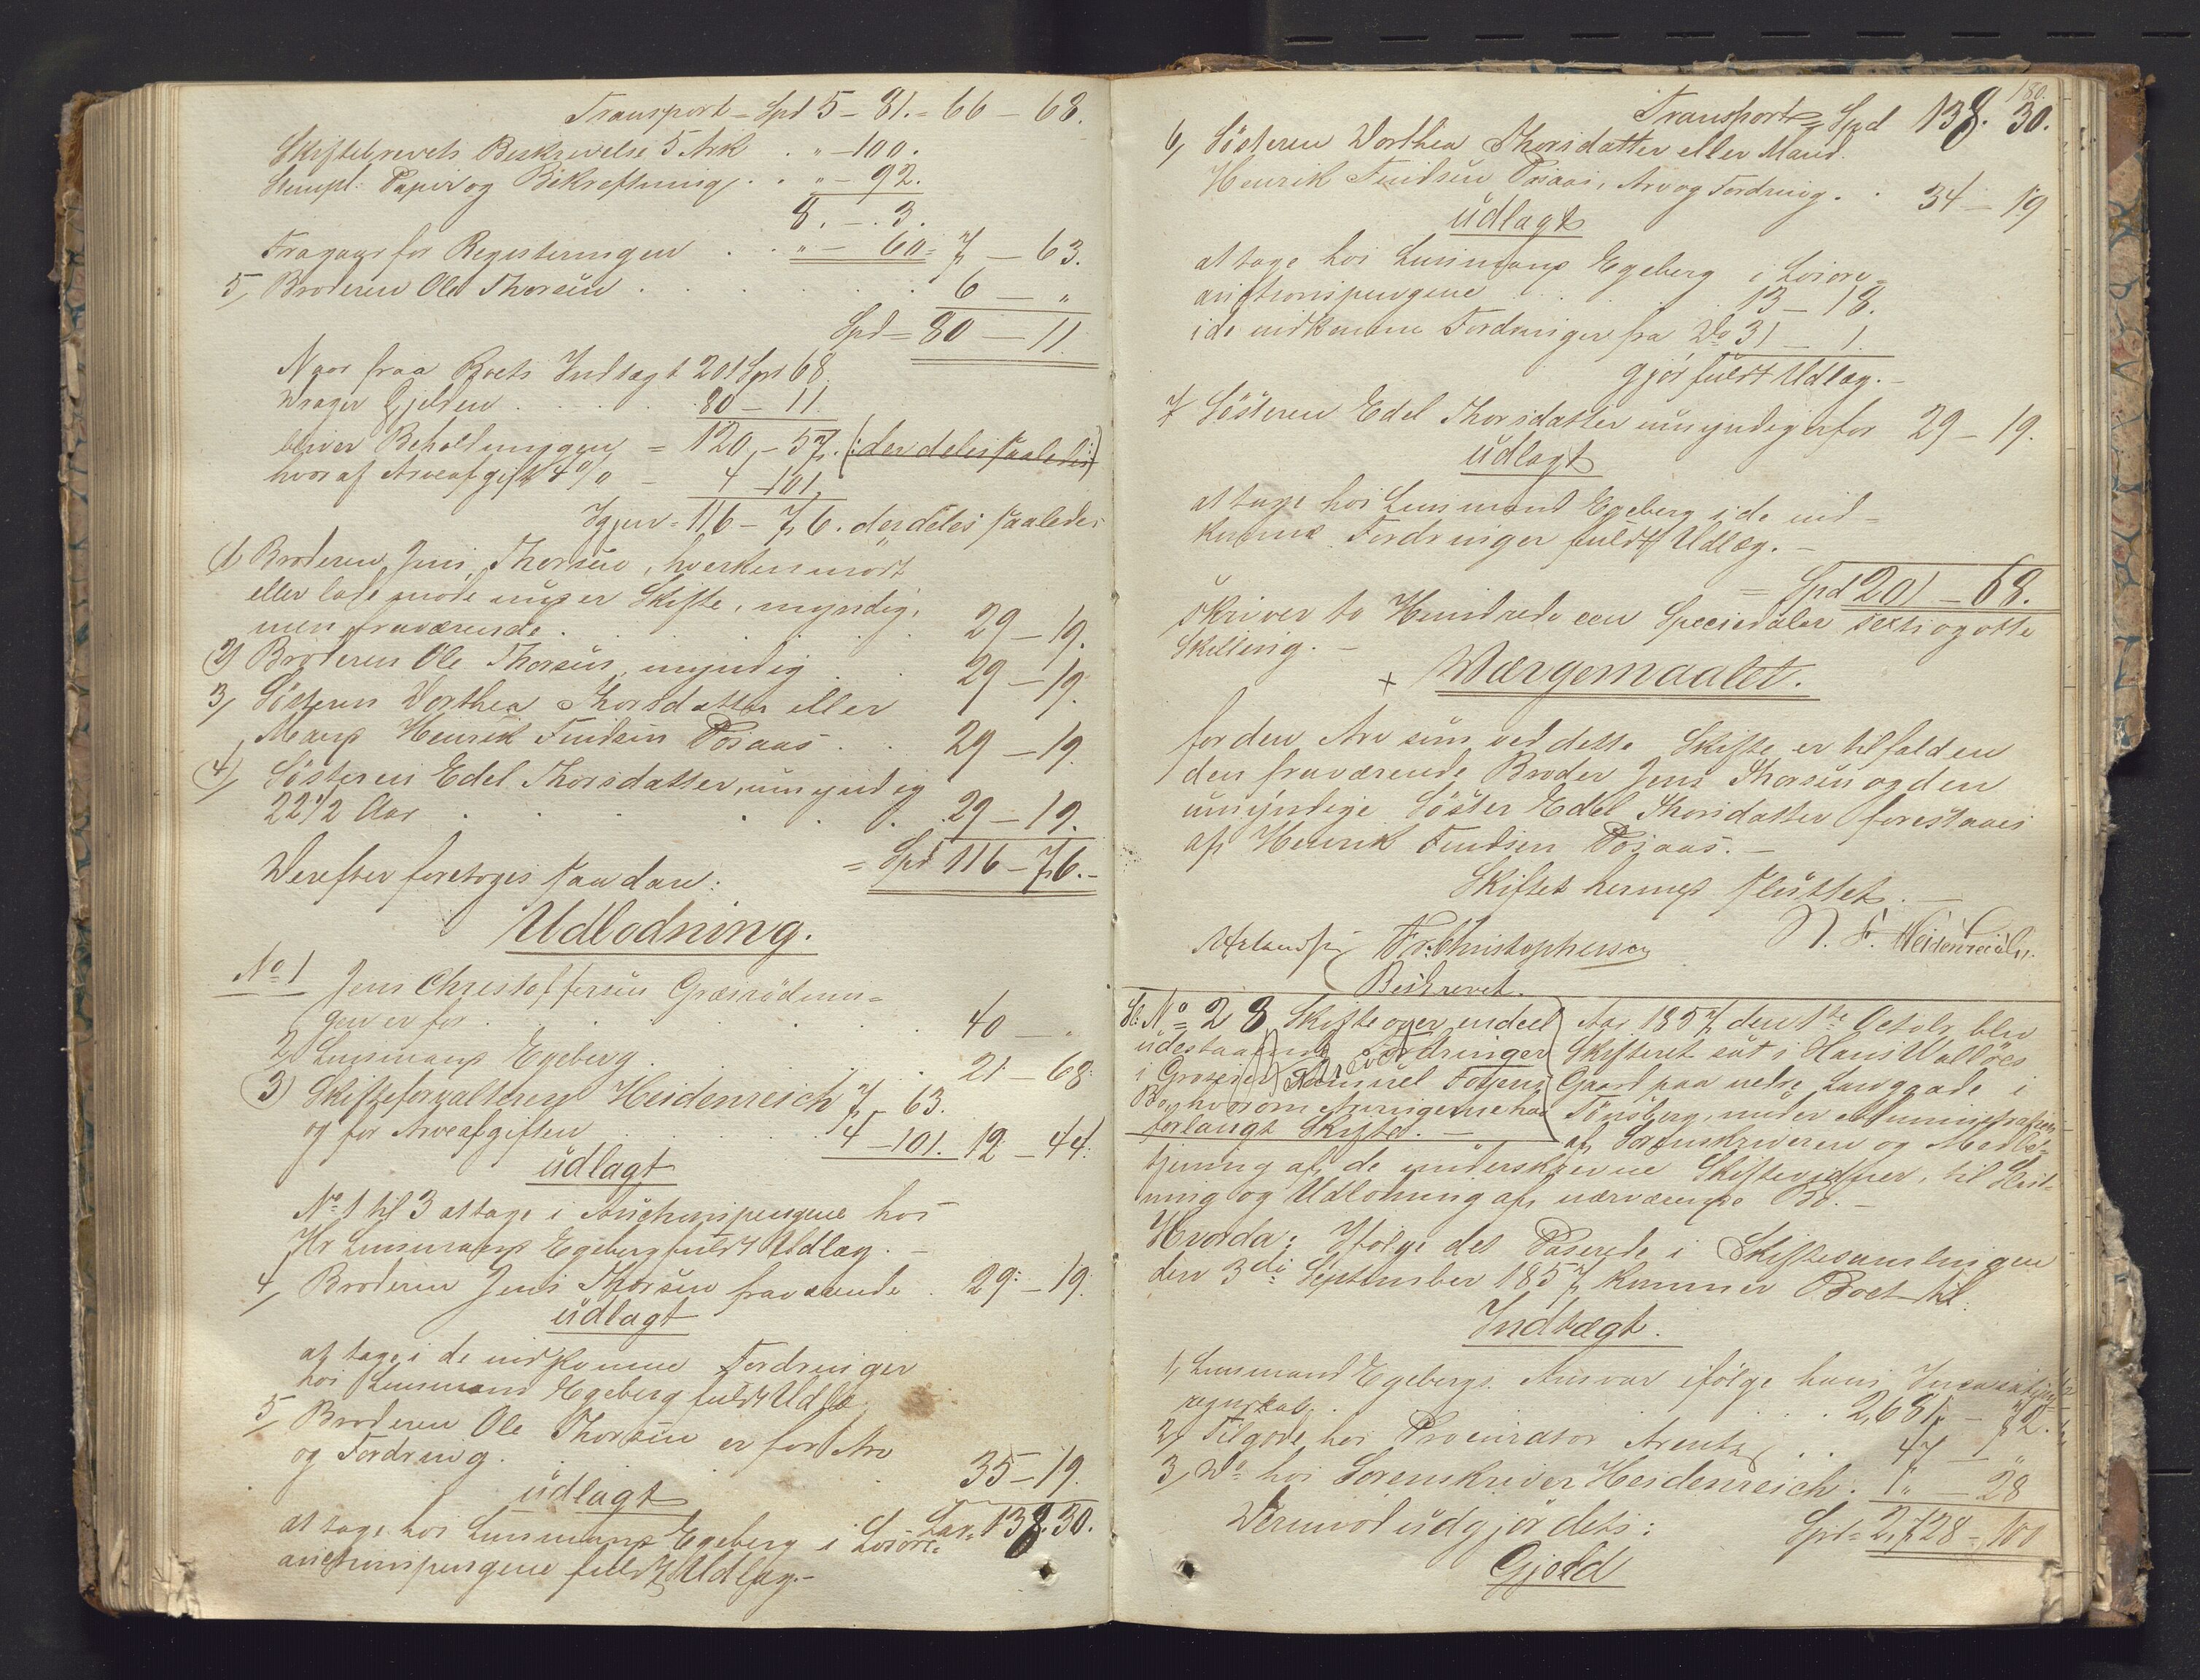 Transport = Spd 5 – 81. = 66 – 68.
Skiftebrevets Beskrivelse 5 Ark . . „ – 100.
Stempl: Papir og Bekreftning . . „ – 92.
8. – . 3.
for Registeringen . . „ – 60 = 7 – 63.
5, Broderen Ole Thorsen . . . . . . 6 – „
Spd = 80 – 11.
Naar fraa Boets Indtægt 201 Spd 68
Drager Gjelden . . . . 80 – 11.
bliver Beholdningen = 120, – 57. (: der deles saaledes :)
hvoraf Arveafgift 4 % – 4 – 101.
Igjen = 116 – 76. der deles saaledes
1) Broderen Jens Thorsen, hverken mødt
eller lade møde under Skifte, myndig,
men fraværende . . . . . . 29 – 19.
2) Broderen Ole Thorsen, myndig . . 29 – 19.
3, Søsteren Dorthea Thorsdatter eller
Mand Henrik Findsen . . 29 – 19.
4) Søsteren Edel Thorsdatter, umyndig
22 1/2 Aar . . . . . . 29 – 19.
= Spd 116 – 76. –
Derefter foretoges saadan:
Udlodning.
No 1 Jens Christoffersen Græsrödnin=
gen er for . . . . . . 40 – „
2, Lensmand Egeberg . . . . 21 – 68.
3) Skifteforvalteren Heidenreich 7 – 63.
og for Arveafgiften . . . . 4 – 101. 12 – 44.
udlagt
No 1 til 3 at tage i Auctionspengene hos
Hr Lensmand Egeberg fuldt Udlæg. –
4, Broderen Jens Thorsen fraværende . 29 – 19.
udlagt
at tage i de indkomne Fordringer
hos Lensmand Egeberg fuldt Udlæ
5, Broderen Ole Thorsen er for Arv
og Fordring . . . . . 35 – 19.
udlagt
at tage hos Lensmand Egeberg i Løsöre= Lar. 138. 30.
auctionspengene fuldt Udlæg. –
180.
Transport = Spd 138. 30.
6, Søsteren Dorthea Thorsdatter eller Mand
Henrik Findsen, Arv og Fordring . . 34 – 19
udlagt
at tage hos Lensmand Egeberg i Løsøre=
auctionspengene . . . . 13 – 18.
i de indkomne Fordringer fra Do 31 – 1.
gjør fuldt Udlæg. –
7 Søsteren Edel Thorsdatter umyndig er for 29 – 19.
udlagt
at tage hos Lensmand Egeberg i de ind=
komne Fordringer fuldt Udlæg. –
= Spd 201 – 68.
skriver to Hundrede een Speciedaler sexti og otte
Skilling. –
+ Værgemaalet.
for den Arv som ved dette Skifte er tilfalden
den fraværende Broder Jens Thorsen og den
umyndige Søster Edel Thorsdatter forestaaes
af Henrik Findsen. –
Skiftet hermed sluttet. –
Fr: Christophersen N. F. Heidenreich.
Beskrevet.
No 28 Skifte over endeel
udestaaende Fordringer
i Grosserer Samuel Foyens
Bo, hvorom Arvingerne har
forlangt Skifte. –
Aar 1857 den 1te Octobr blev
Skifteret sat i Hans Valløes
Gaard paa nedre Langgade i
Tønsberg, under Administration
af Sorenskriveren og Medbe=
tjening af de underskrevne Skiftevidner, til Slut=
ning og Udlodning af nærværende Bo. –
Hvorda: Ifølge det Passerede i Skiftesamlingen
den 3die September 1857 kommer Boet til
Indtægt.
1, Lensmand Egebergs Ansvar ifølge hans
regnskab . . . . . . 2,681 – 72.
2, Tilgode hos Procurator Arentz . . 47 – „
3, Do hos Sorenskriver Heidenreich . „ – 28
Spd = 2,728 – 100
Derimod udgjør dets:
Gjeld